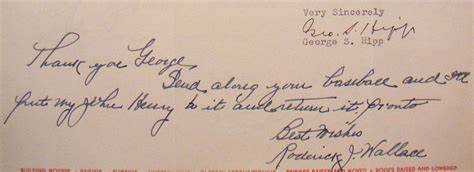 Very Sincerely
Geo. S. Hipp
George S. Hipp
Thank you George
Send along your baseball and I'll
put my John Henry to it and return it pronto
Best Wishes
Roderick J. Wallace
BUILDING MOVING RAISING ROOFS RAISED AND LOWERED